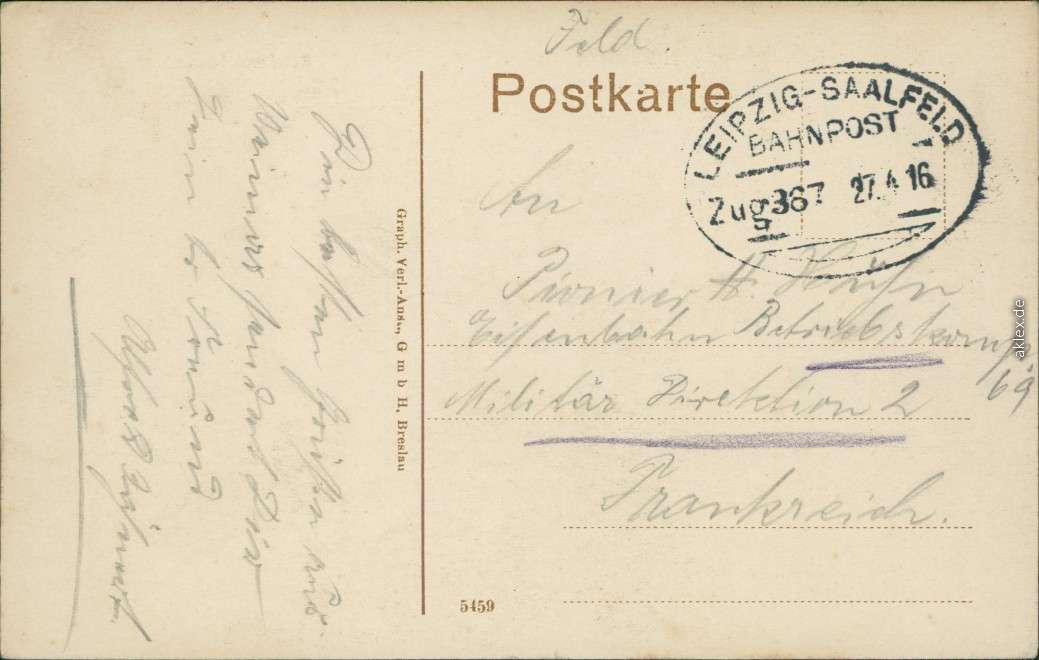 Feld.
Postkarte
LEIPZIG-SAALFELD
BAHNPOST
Zug 367 27.4 16
An
Pionier H. Kühn
Eisenbahn Betriebskomp.
69
Militär Direktion 2
Frankreich.
Die besten Grüße aus
Weimar sendet Dir
Dein
Graph. Verl.-Anst., G m b H, Breslau
5459
aklex.de